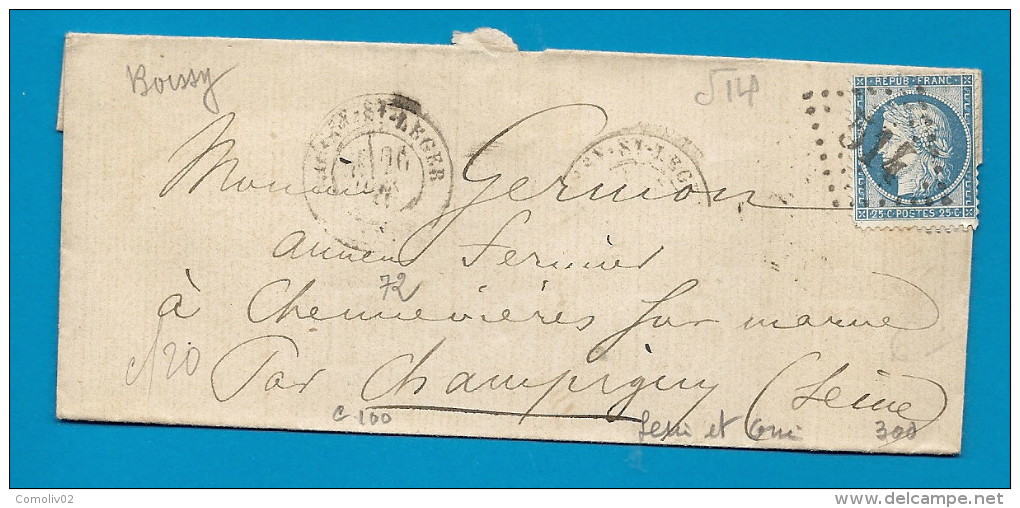 Boissy
514
REPUB. FRANC.
514
25 C POSTES 25 C
BOISSY-ST-LEGER
SSY-ST-LEG
Monsieur Germon
ancien Fermier
72
à Chennevières sur marne
120
Par Champigny (Seine)
c-100
Seine et Oise
300
Comoliv02
delcampe.net